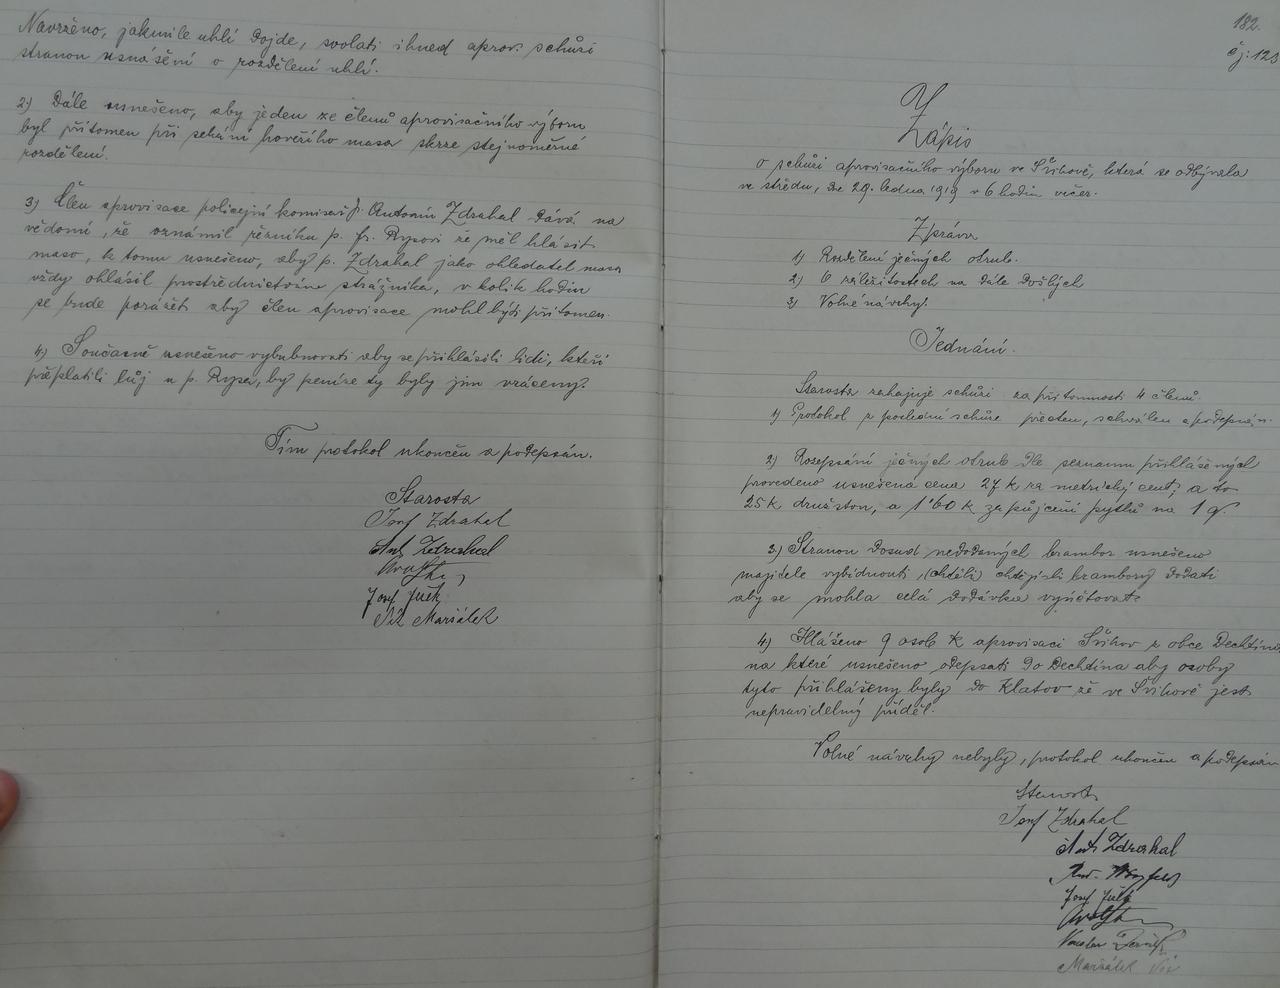 Navrženo, jakmile uhlí dojde, svolati ihned aprov. schůzi
stranou usnášení o rozdělení uhlí.
2.) Dále usnešeno, aby jeden ze členů aprovisačního výboru
byl přítomen při sekání hovězího masa skrze stejnoměrné
rozdělení.
3.) Člen aprovisace policejní komisař p. Antonín Zdrahal dává na
vědomí, že oznámil řezníku p. fr. Rysovi že měl hlásit
maso, k tomu usnešeno, aby p. Zdrahal jako ohledatel masa
vždy ohlásil prostřednictvem strážníka, v kolik hodin
se bude porážeti aby člen aprovisace mohl býti přítomen.
4.) Současně usnešeno vybubnovati aby se přihlásili lidi, kteří
přeplatili lůj u p. Rysa, by peníze ty byly jim vráceny.
Tím protokol ukončen a podepsán.
Starosta
Josef Zdrahal
Ant Zdrahal
Josef Jílek
Vít Maršálek
182.
čj: 123
Zápis
o schůzi aprovisačního výboru ve Švihově, která se odbývala
ve středu, dne 29. ledna 1919 v 6 hodin večer.
Zpráva
1) Rozdělení ječných otrub.
2) O záležitostech na dále došlých
3) Volné návrhy.
Jednání.
Starosta zahajuje schůzi za přítomnosti 4 členů.
1) Protokol z poslední schůze přečten, schválen a podepsán.
2) Rozepsání ječných otrub dle seznamu přihlášených
provedeno usnešená cena 27 K za metrický cent, a to
25 K družstvu, a 1'60 K za půjčení pytlů na 1 q.
3.) Stranou dosud nedodaných brambor usnešeno
majitele vybídnouti, (chtěli) chtějí-li brambory dodati
aby se mohla celá dodávka vyúčtovat.
4) Hlášeno 9 osob k aprovisaci Švihov z obce Dechtína
na které usnešeno odepsati do Dechtína aby osoby
tyto přihlášeny byly do Klatov že ve Švihově jest
nepravidelný příděl.
Volné návrhy nebyly, protokol ukončen a podepsán
Starosta
Josef Zdrahal
Ant Zdrahal
Josef Jílek
Maršálek Vít